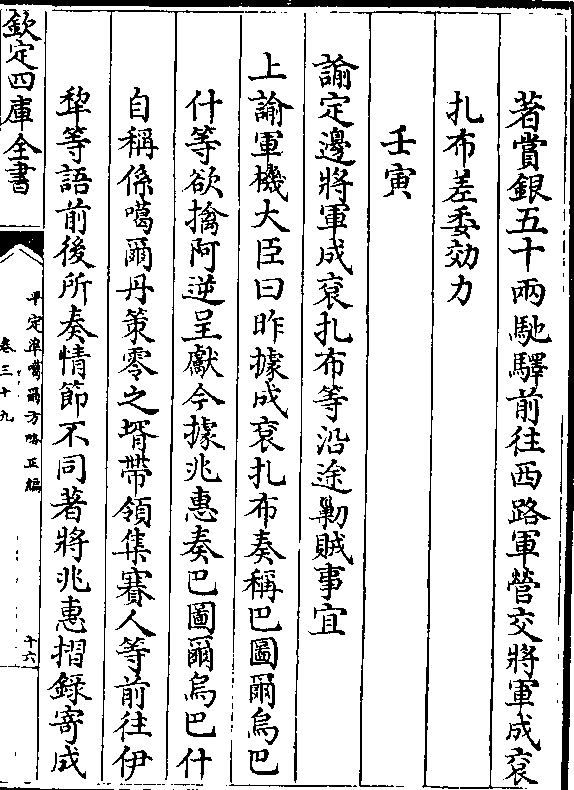 著賞銀五十兩馳驛前往西路軍營交將軍成衮
扎布差委効力
壬寅
諭定邊將軍成衮扎布等沿途勦賊事宜
上諭軍機大臣曰昨據成衮扎布奏稱巴圖爾烏巴
什等欲擒阿逆呈獻今據兆惠奏巴圖爾烏巴什
自稱係噶爾丹策零之壻帶領集賽人等前往伊
犂等語前後所奏情節不同著將兆惠摺錄寄成
欽定四庫全書
平定準噶爾方略正編
卷三十九
十六